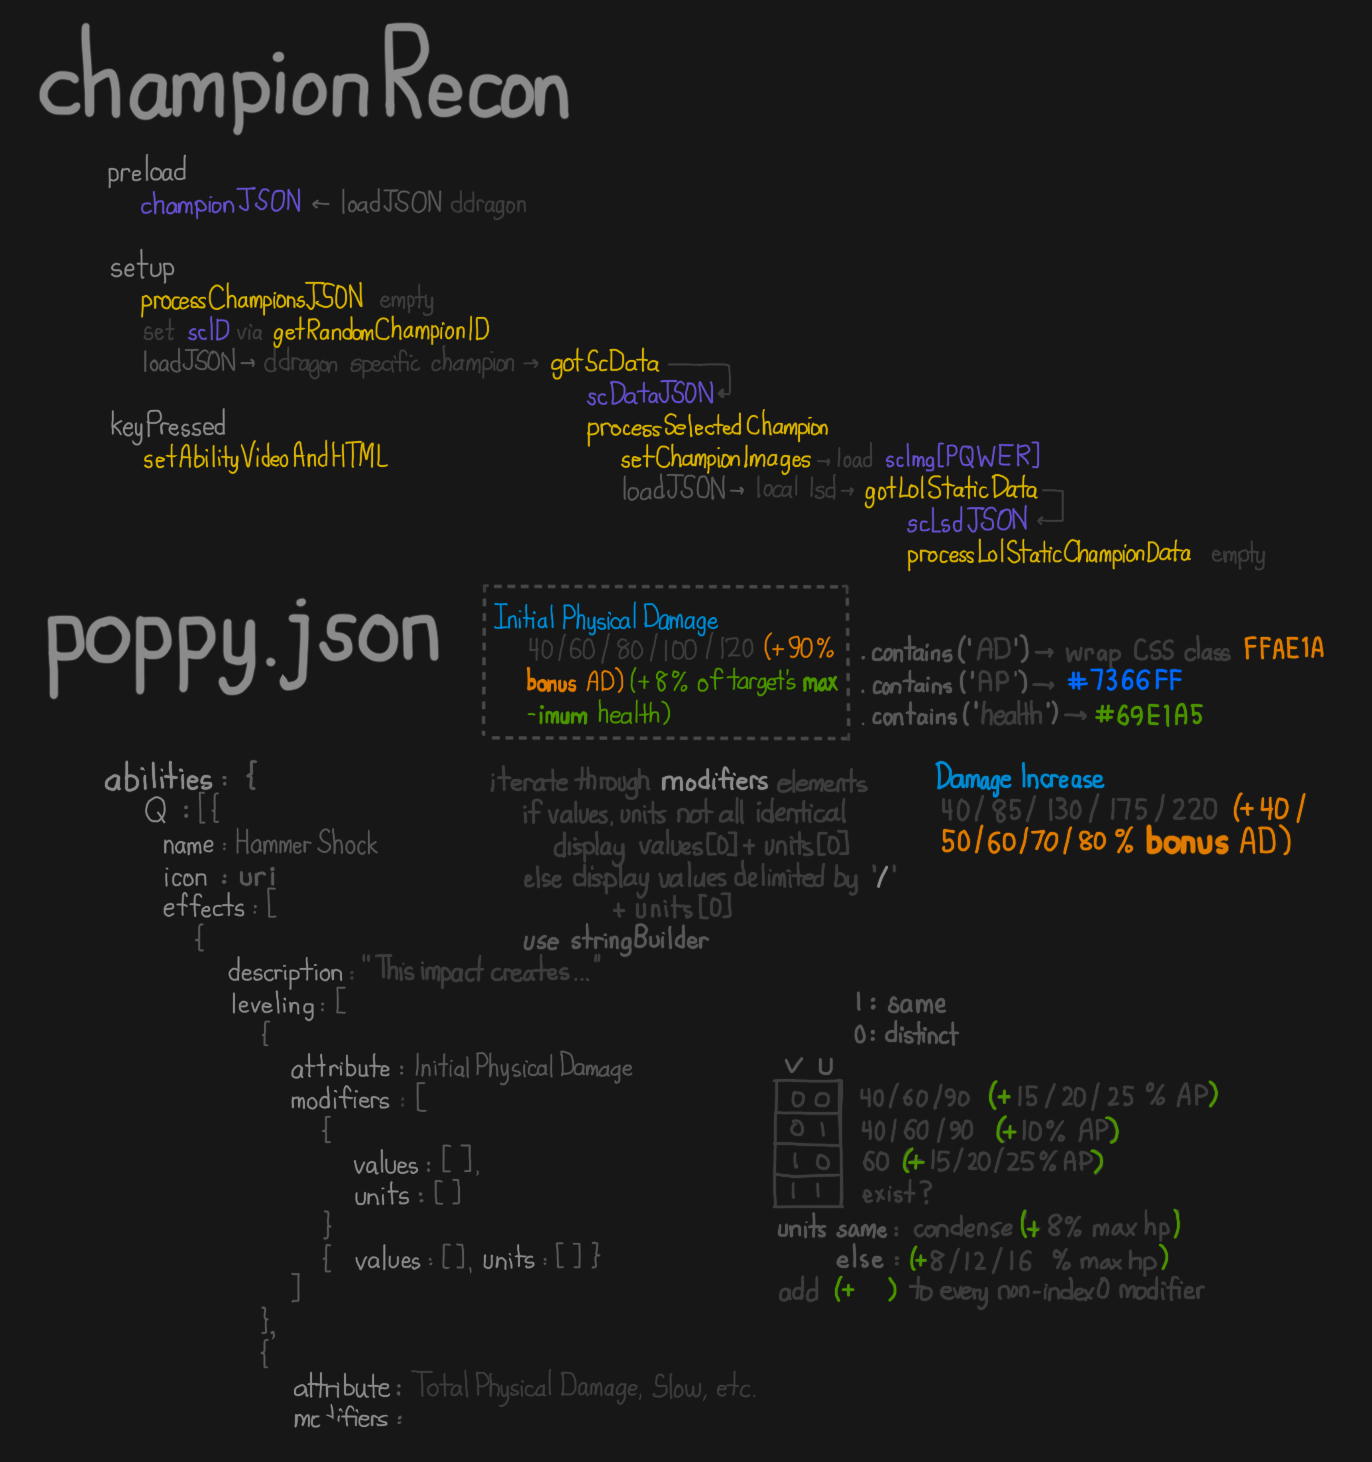 championRecon
preload
championJSON ← loadJSON ddragon
setup
processChampionsJSON empty
set scID via getRandomChampionID
loadJSON → ddragon specific champion → gotScData
scDataJSON
keyPressed
processSelectedChampion
setAbilityVideoAndHTML
setChampionImages → load scImg[PQWER]
loadJSON → local lsd → gotLolStaticData
scLsdJSON
processLolStaticChampionData empty
poppy.json
Initial Physical Damage
40/60/80/100/120 (+90%
bonus AD) (+8% of target's max
-imum health)
.contains('AD') → wrap CSS class FFAE1A
.contains('AP') → #7366FF
.contains('health') → #69E1A5
abilities: {
Q : [{
name : Hammer Shock
icon : uri
effects : [
{
description : "This impact creates..."
leveling : [
{
attribute : Initial Physical Damage
modifiers : [
{
values : [ ],
units : [ ]
}
{ values : [ ], units : [ ] }
]
},
{
attribute : Total Physical Damage, Slow, etc.
modifiers :
iterate through modifiers elements
if values, units not all identical
display values[0] + units[0]
else display values delimited by '/'
+ units[0]
use stringBuilder
Damage Increase
40/ 85/ 130/ 175/ 220 (+40/
50/60/70/80 % bonus AD)
1 : same
0 : distinct
V U
0 0 40/60/90 (+15/20/25 % AP)
0 1 40/60/90 (+10% AP)
1 0 60 (+15/20/25% AP)
1 1 exist?
units same : condense (+ 8% max hp)
else : (+8/12/16 % max hp)
add (+ ) to every non-index0 modifier